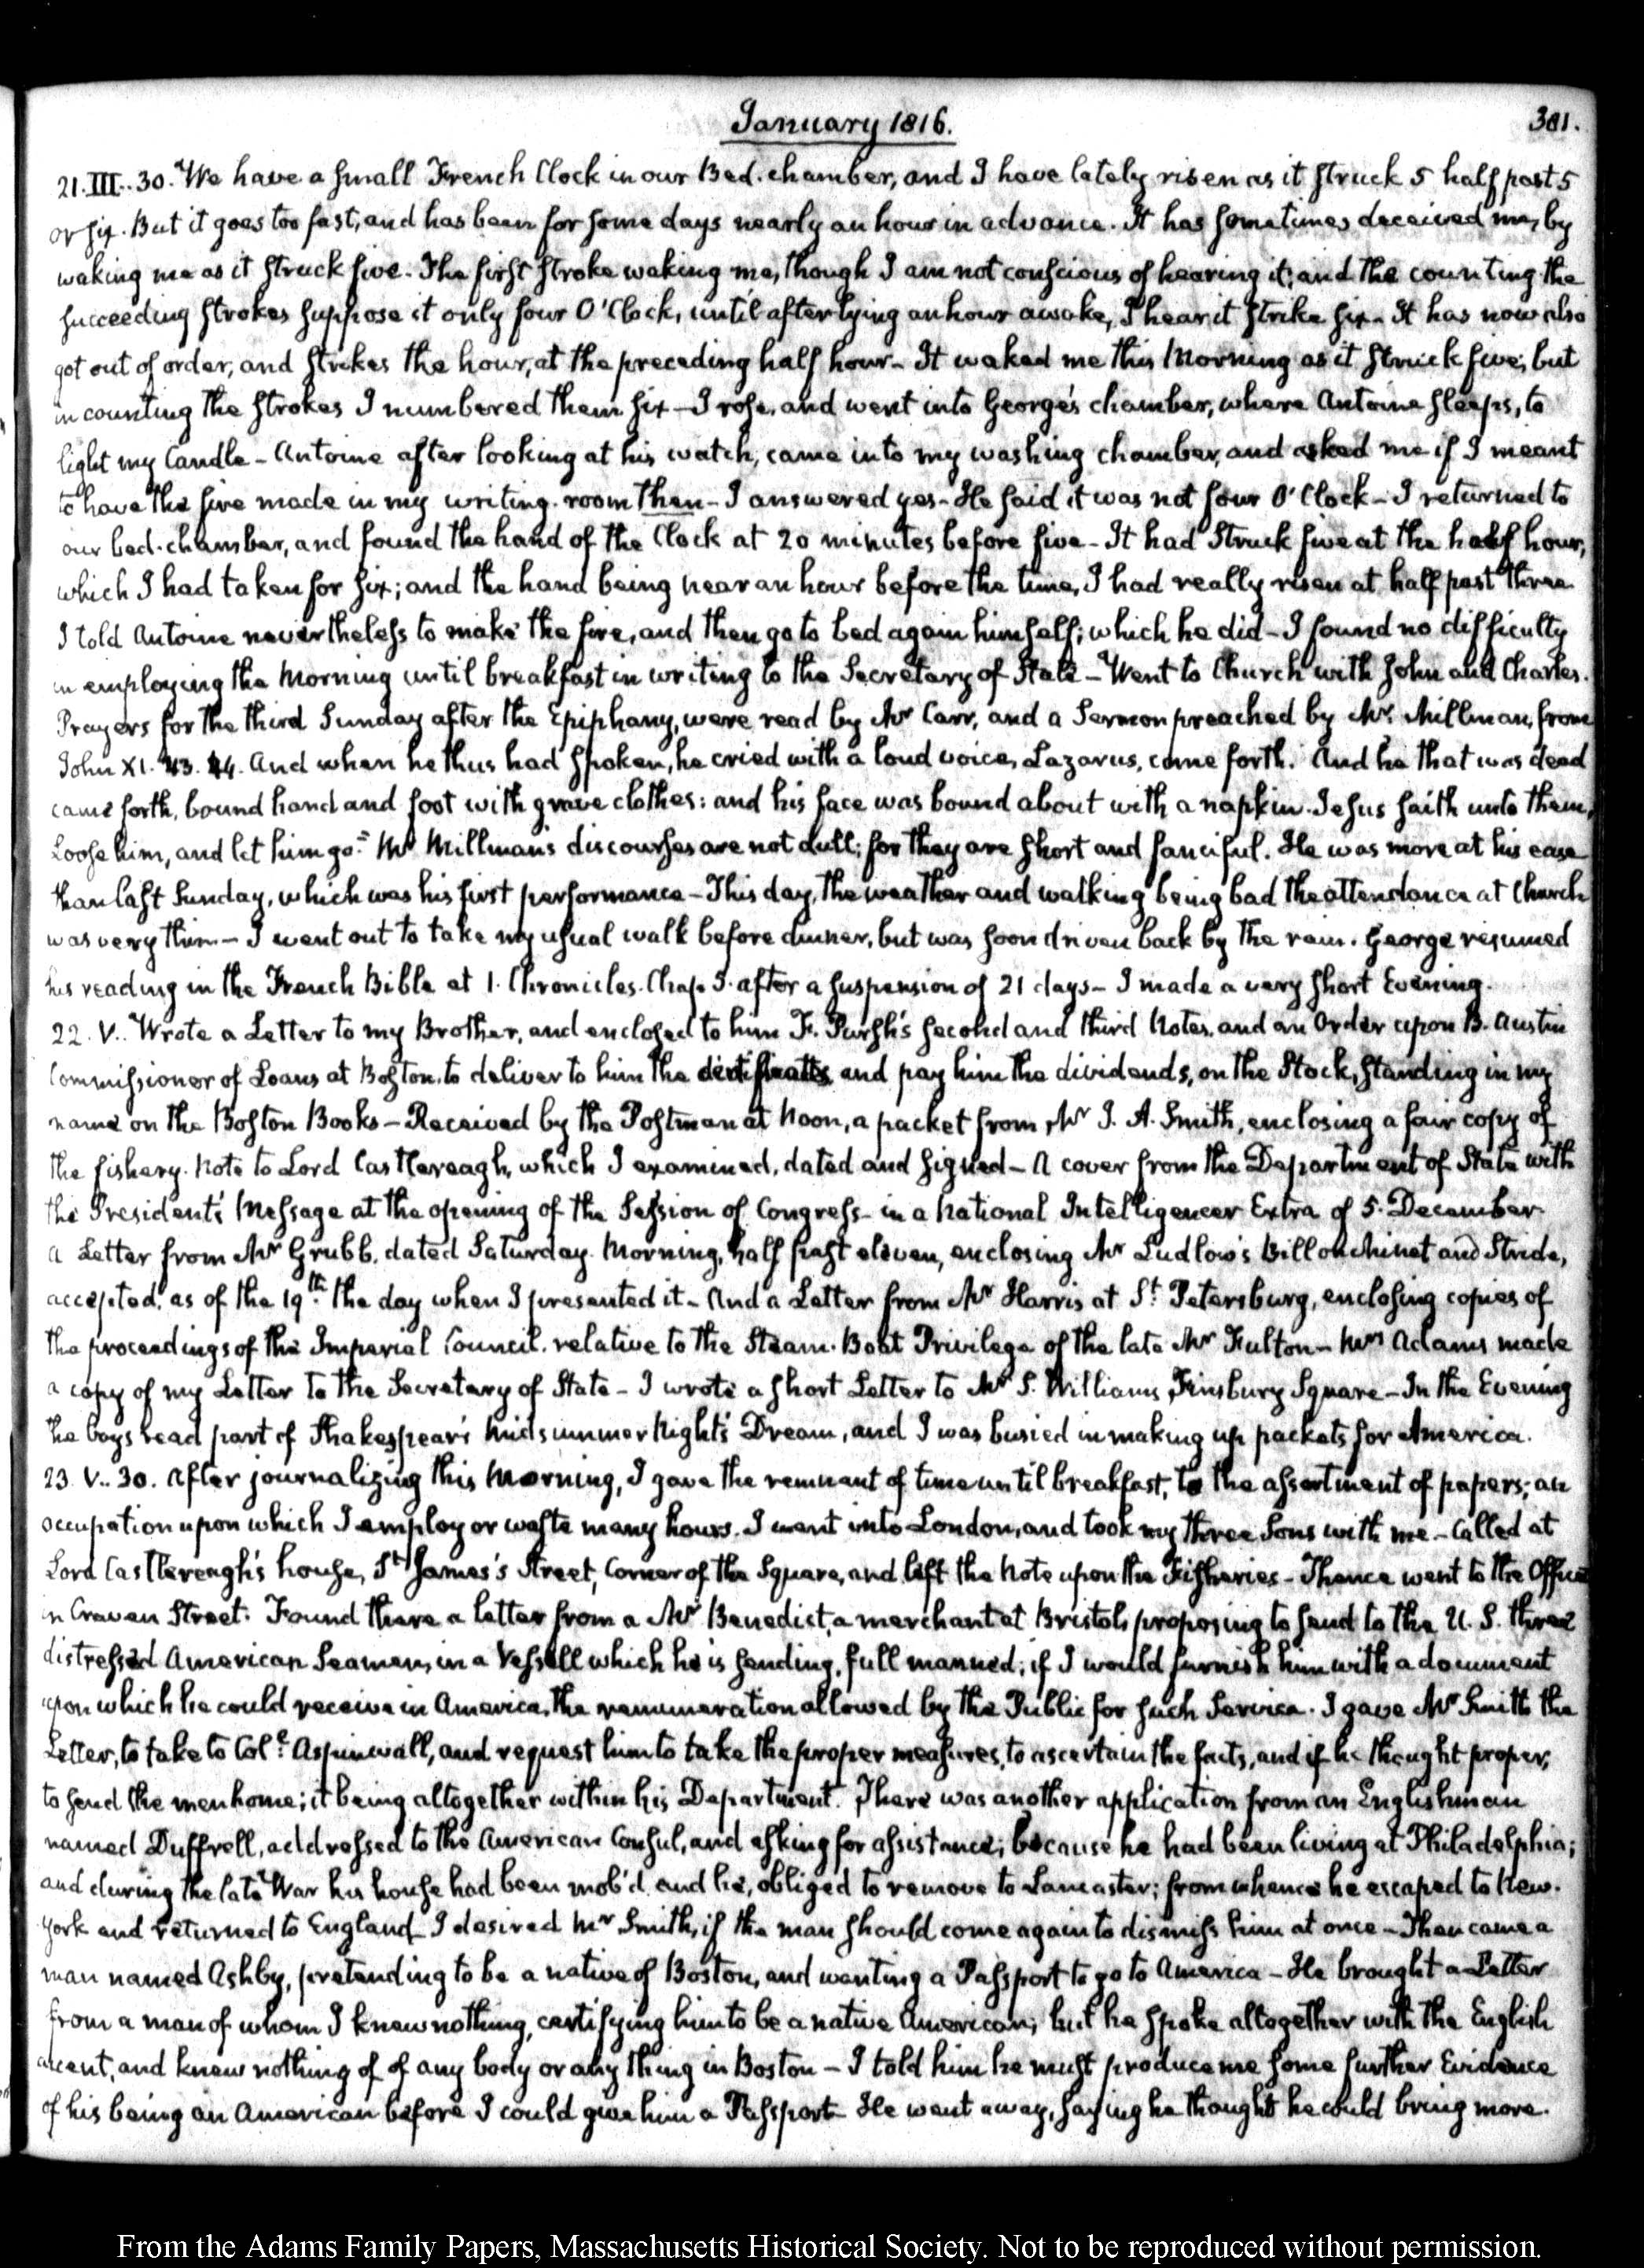 January 1816.
381.
21. III..30. We have a small French Clock in our Bed-chamber, and I have lately risen as it struck 5 half past 5
or six. But it goes too fast, and has been for some days nearly an hour in advance. It has sometimes deceived me, by
waking me as it struck five. The first stroke waking me, though I am not conscious of hearing it; and the counting the
succeeding strokes suppose it only four O'Clock, until after lying an hour awake, I hear it strike six- It has now also
got out of order, and strikes the hour, at the preceding half hour- It waked me this Morning as it struck five; but
in counting the strokes I numbered them six- I rose, and went into George's chamber, where Antoine sleeps, to
light my Candle- Antoine after looking at his watch, came into my washing chamber, and asked me if I meant
to have the fire made in my writing-room then- I answered yes- He said it was not four O'Clock- I returned to
our bed-chamber, and found the hand of the Clock at 20 minutes before five- It had struck five at the half hour,
which I had taken for six; and the hand being near an hour before the time, I had really risen at half past three
I told Antoine nevertheless to make the fire, and then go to bed again himself; which he did- I found no difficulty
in employing the Morning until breakfast in writing to the Secretary of State- Went to Church with John and Charles.
Prayers for the third Sunday after the Epiphany, were read by Mr Carr, and a Sermon preached by Mr. Millman, from
John XI. 43. 44. And when he thus had spoken, he cried with a loud voice, Lazarus, come forth. And he that was dead
came forth, bound hand and foot with grave clothes: and his face was bound about with a napkin. Jesus saith unto them,
Loose him, and let him go." Mr Millman's discourses are not dull; for they are short and fanciful. He was more at his ease
than last Sunday, which was his first performance- This day, the weather and walking being bad the attendance at Church
was very thin- I went out to take my usual walk before dinner, but was soon driven back by the rain. George resumed
his reading in the French Bible at 1. Chronicles. Chap. 5. after a suspension of 21 days- I made a very short Evening.
22. V.. Wrote a Letter to my Brother, and enclosed to him F. Pursh's second and third Notes, and an Order upon B. Austin
Commissioner of Loans at Boston, to deliver to him the certificates and pay him the dividends, on the Stock, standing in my
name on the Boston Books- Received by the Postman at Noon, a packet from Mr J. A. Smith, enclosing a fair copy of
the fishery-Note to Lord Castlereagh, which I examined, dated and signed- A cover from the Department of State with
the President's Message at the opening of the Session of Congress- in a National Intelligencer Extra of 5. December
a Letter from Mr Grubb, dated Saturday Morning, half past eleven, enclosing Mr Ludlow's Bill on Minet and Stride,
accepted, as of the 19th. the day when I presented it- And a Letter from Mr Harris at St. Petersburg, enclosing copies of
the proceedings of the Imperial Council, relative to the Steam-Boat Privilege of the late Mr Fulton- Mrs Adams made
a copy of my Letter to the Secretary of State- I wrote a short Letter to Mr S. Williams, Finsbury Square- In the Evening
the boys read part of Shakespear's Midsummer Night's Dream, and I was busied in making up packets for America.
23. V..30. After journalizing this Morning, I gave the remnant of time until breakfast, to the assortment of papers; an
occupation upon which I employ or waste many hours. I went into London, and took my three Sons with me- Called at
Lord Castlereagh's house, St James's Street, Corner of the Square, and left the Note upon the Fisheries- Thence went to the Office
in Craven Street. Found there a letter from a Mr Benedict, a merchant at Bristol, proposing to send to the U.S. three
distressed American Seamen, in a Vessell which he is sending, full manned; if I would furnish him with a document
upon which he could receive in America, the renumeration allowed by the Public for such Service. I gave Mr Smith the
Letter, to take to Coll. Aspinwall, and request him to take the proper measures, to ascertain the facts, and if he thought proper,
to send the men home; it being altogether within his Department. There was another application from an Englishman
named Duffrell, addressed to the American Consul, and asking for assistance; because he had been living at Philadelphia;
and during the late War his house had been mob'd, and he, obliged to remove to Lancaster; from whence he escaped to New-
York and returned to England- I desired Mr Smith, if the man should come again to dismiss him at once- Then came a
man named Ashby, pretending to be a native of Boston, and wanting a Passport to go to America- He brought a Letter
from a man of whom I knew nothing, certifying him to be a native American; but he spoke altogether with the English
accent, and knew nothing of of any body or any thing in Boston- I told him he must produce me some further Evidence
of his being an American before I could give him a Passport- He went away, saying he thought he could bring more.
From the Adams Family Papers, Massachusetts Historical Society. Not to be reproduced without permission.